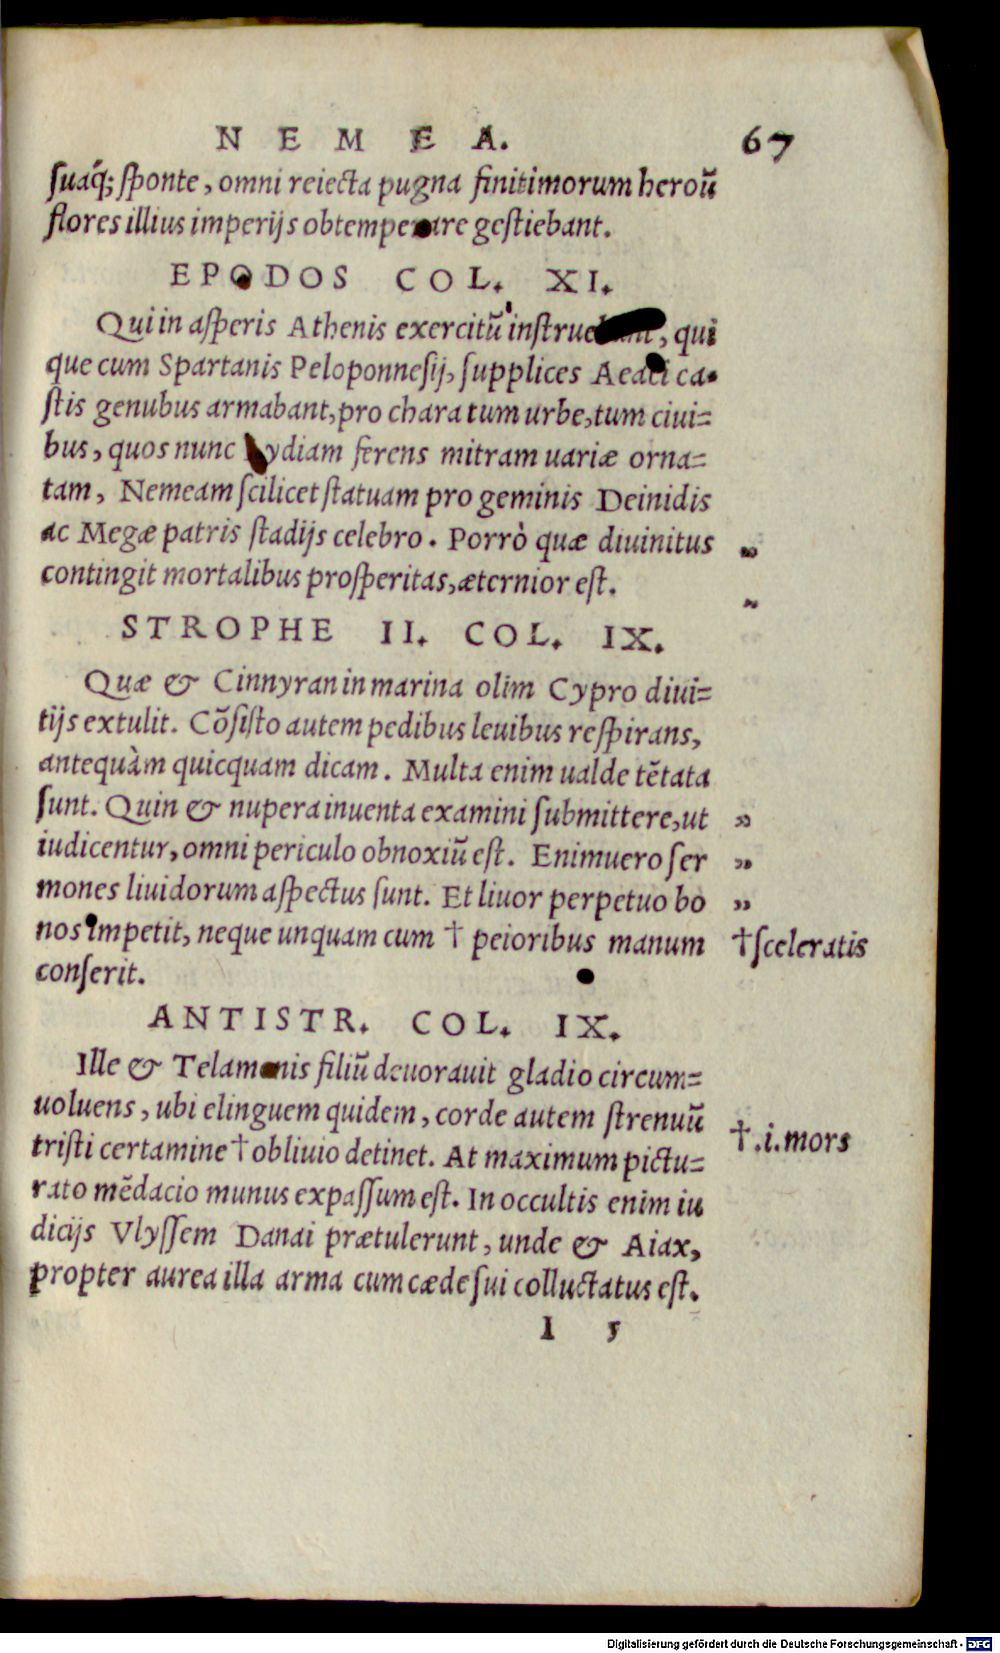 NEMEA. 67
suaq́; sponte, omni reiecta pugna finitimorum heroũ
flores illius imperijs obtemperare gestiebant.
EPODOS COL. XI.
Qui in asperis Athenis exercitũ instruebant, qui
que cum Spartanis Peloponnesij, supplices Aeaci ca-
stis genubus armabant, pro chara tum urbe, tum ciui=
bus, quos nunc Lydiam ferens mitram uariæ orna=
tam, Nemeam scilicet statuam pro geminis Deinidis
ac Megæ patris stadijs celebro. Porrò quæ diuinitus „
contingit mortalibus prosperitas, æternior est. „
STROPHE II. COL. IX.
Quæ & Cinnyran in marina olim Cypro diui=
tijs extulit. Cõsisto autem pedibus leuibus respirans,
antequàm quicquam dicam. Multa enim ualde tẽtata
sunt. Quin & nupera inuenta examini submittere, ut „
iudicentur, omni periculo obnoxiũ est. Enimuero ser „
mones liuidorum aspectus sunt. Et liuor perpetuo bo „
nos impetit, neque unquam cum † peioribus manum †sceleratis
conserit.
ANTISTR. COL. IX.
Ille & Telamonis filiũ deuorauit gladio circum=
uoluens, ubi elinguem quidem, corde autem strenuũ
tristi certamine † obliuio detinet. At maximum pictu= †.i.mors
rato mẽdacio munus expassum est. In occultis enim iu
dicijs Vlyssem Danai prætulerunt, unde & Aiax,
propter aurea illa arma cum cæde sui colluctatus est.
I 5
Digitalisierung gefördert durch die Deutsche Forschungsgemeinschaft - DFG